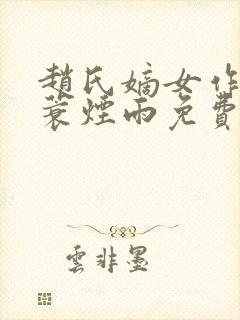 趙氏嫡女作
蓑煙雨免費
雲非墨